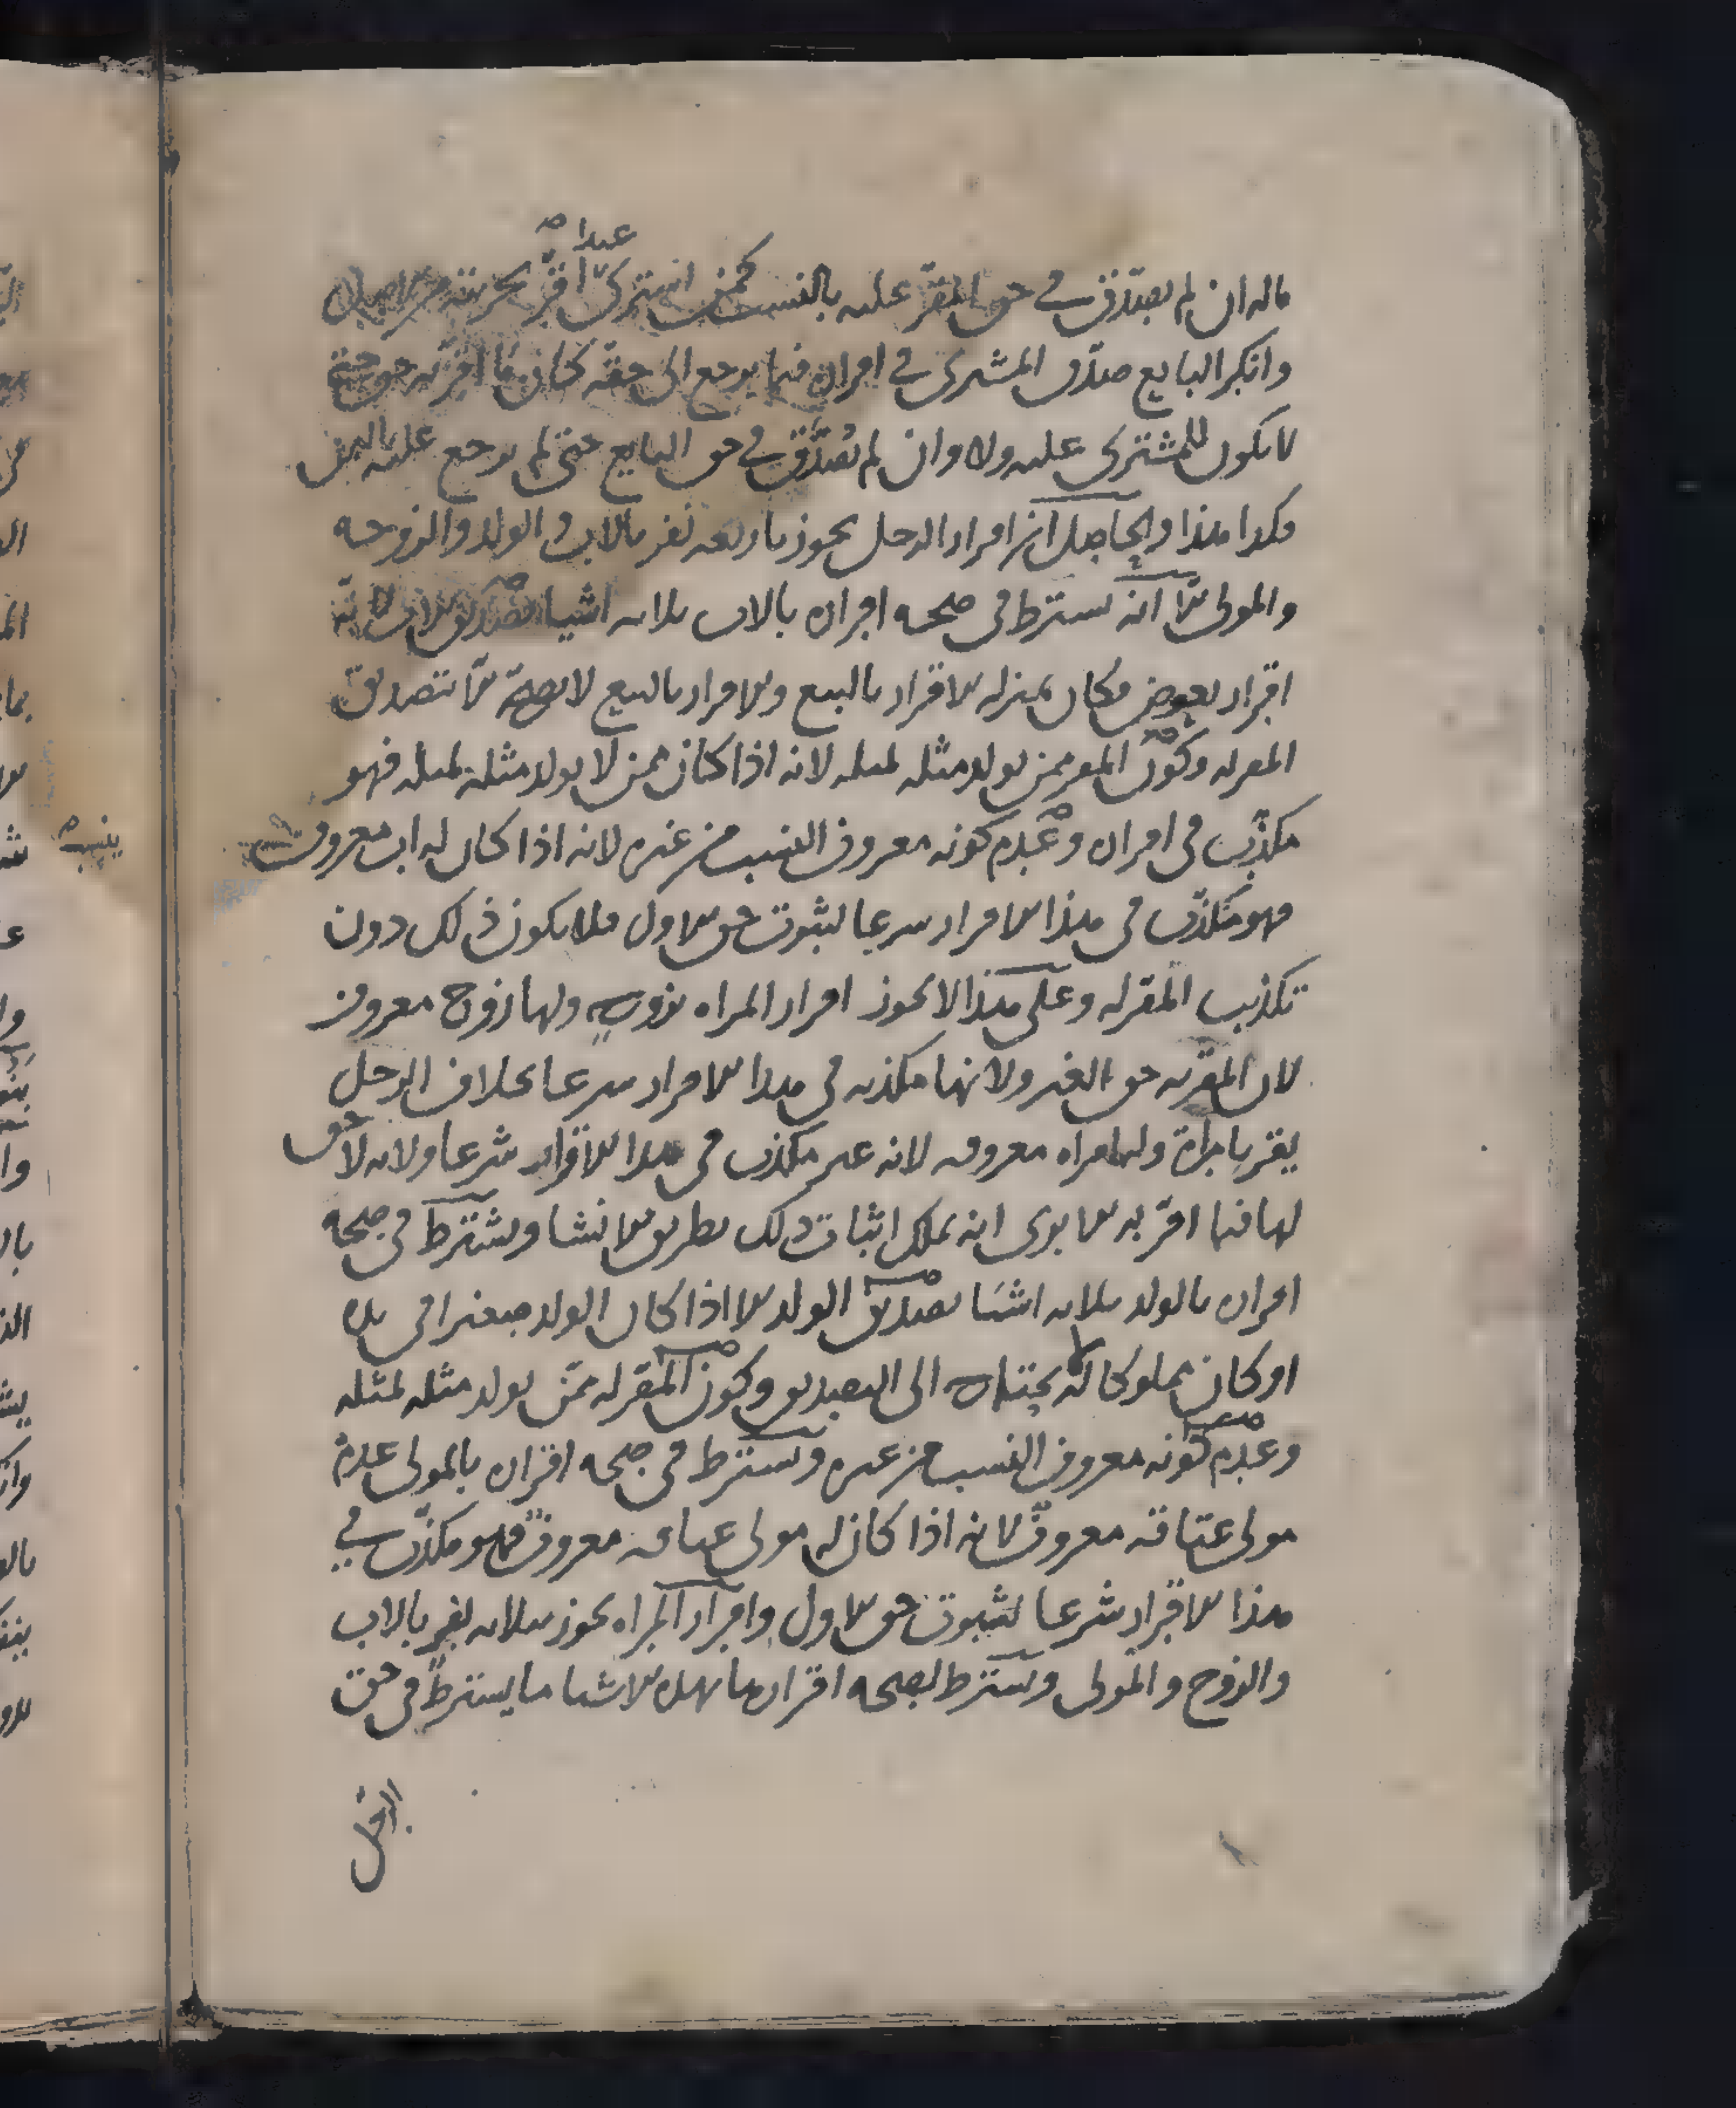 عبدا صح
ماله ان لم يصدق في حق المقر عليه بالنسب كمن اشترى اقر بحريته
وانكر البايع صدق المشترى في اقراره فيما يرجع الى حقه كان ما اقر به حق حتى
لا يكون للمشترى عليه ولا وان لم يصدق في حق البايع حتى لم يرجع عليه بالثمن
فكذا هذا والحاصل ان اقرار الرجل يجوز باربعة نفر بالاب والولد والزوجه
والمولى الا انه يشترط في صحه اقراره بالاب ثلاثه اشيا تصديق الاب لانه
اقرار بعوض فكان بمنزله الاقرار بالبيع والاقرار بالبيع لا يصح الا بتصديق
المقر له وكون المقر ممن يولد مثله لمثله لانه اذا كان ممن لا يولد مثله لمثله فهو
مكذب في اقراره وعدم كونه معروف النسب من غيره لانه اذا كان له اب معروف
فهو مكذب في هذا الاقرار شرعا لثبوت حق الاول فلا يكون ذلك دون
تكذيب المقر له وعلى هذا لا يجوز اقرار المراه بزوج ولها زوج معروف
لان المقر به حق الغير ولانها مكذبه في هذا الاقرار شرعا بخلاف الرجل
يقر بامراة وله امراه معروفه لانه غير مكذب في هذا الاقرار شرعا ولانه لا حق
لها فيما اقر به الا يرى انه يملك اثبات ذلك بطريق الانشا ويشترط في صحه
اقراره بالولد ثلاثه اشيا تصديق الولد الا اذا كان الولد صغيرا في يده
او كان مملوكا له لا يحتاج الى التصديق وكون المقر له ممن يولد مثله لمثله
وعدم كونه معروف النسب من غيره ويشترط في صحه اقراره بالمولى عدم
مولى عتاقه معروف لانه اذا كان له مولى عتاقه معروف فهو مكذب في
هذا الاقرار شرعا لثبوت حق الاول واقرار المراه يجوز بثلاثه نفر بالاب
والزوج والمولى ويشترط لصحه اقرارها بهذه الاشيا ما يشترط في حق
الرجل